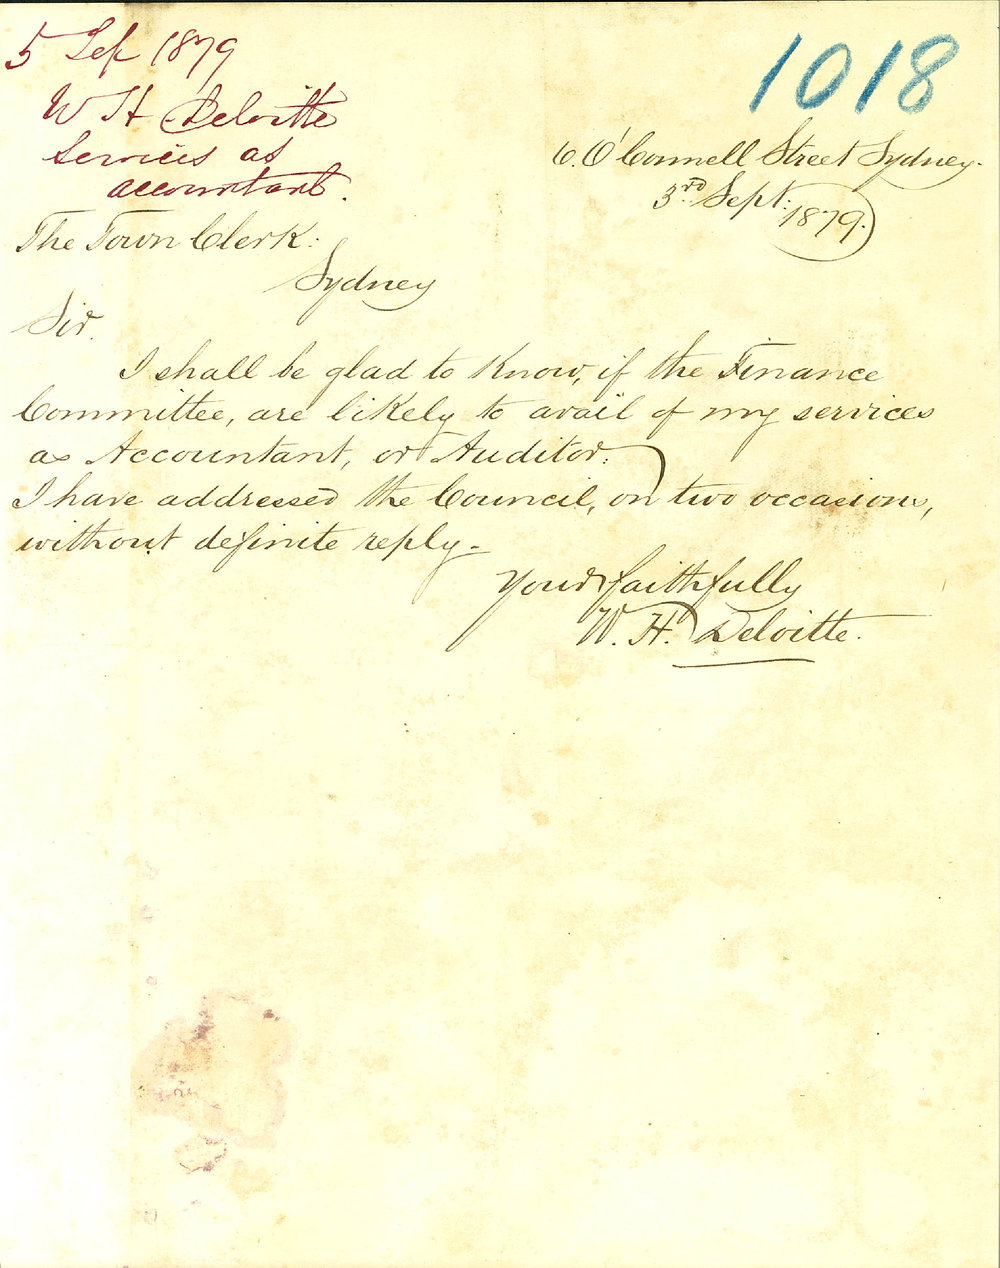 5 Sep 1879
W H Deloitte
Services as
accountant.
1018
6. O'Connell Street Sydney.
3rd Sept: 1879.
The Town Clerk:
Sydney
Sir.
I shall be glad to know, if the Finance
Committee, are likely to avail of my services
as Accountant, or Auditor:
I have addressed the Council, on two occasions,
without definite reply.
Yours faithfully
W. H. Deloitte.